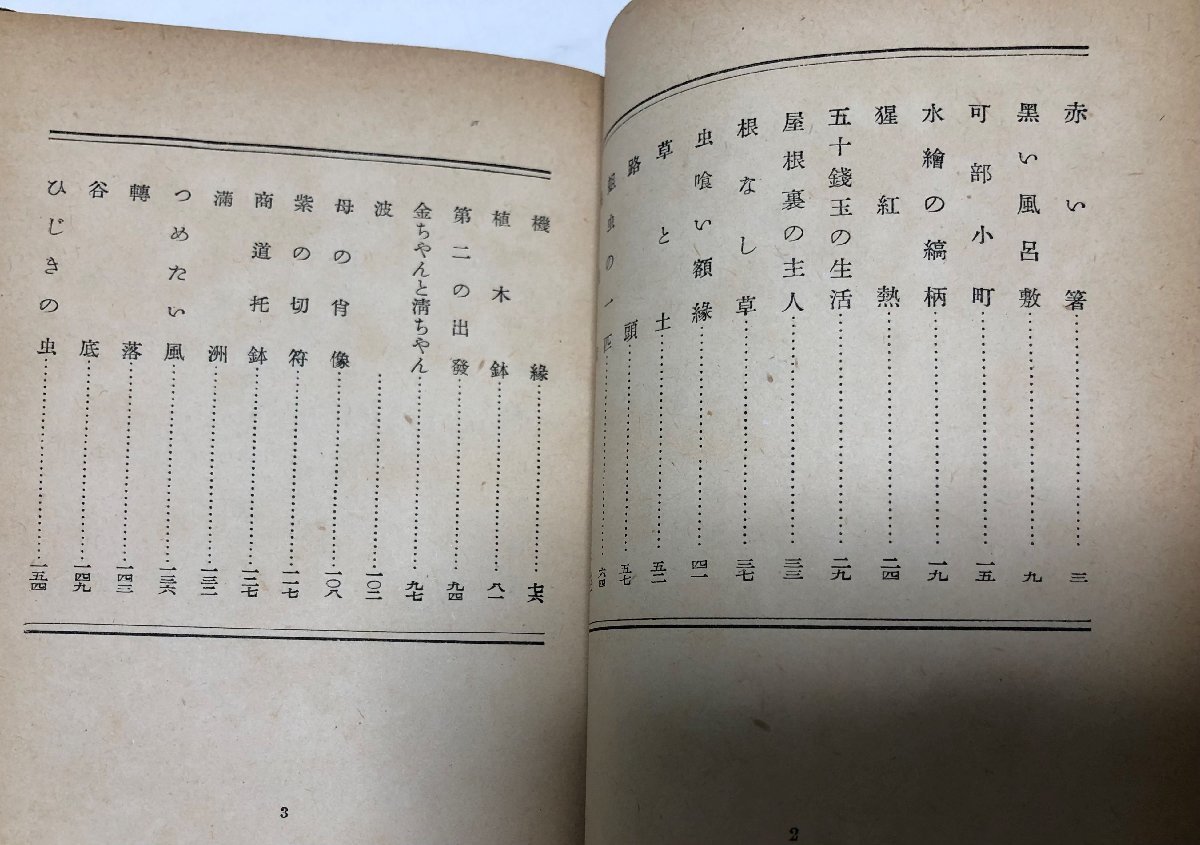 赤い箸……三
黑い風呂敷……九
可部小町……一五
水繪の縞柄……一九
猩紅熱……二四
五十錢玉の生活……二九
屋根裏の主人……三三
根なし草……三七
虫喰い額緣……四一
草と土……五二
路頭……五七
虫の一匹……六四
2
機緣……七六
植木鉢……八一
第二の出發……九四
金ちやんと淸ちやん……九七
波……一〇二
母の肖像……一〇八
紫の切符……一一七
商道托鉢……一二七
滿洲……一三二
つめたい風……一三六
轉落……一四三
谷底……一四九
ひじきの虫……一五四
3